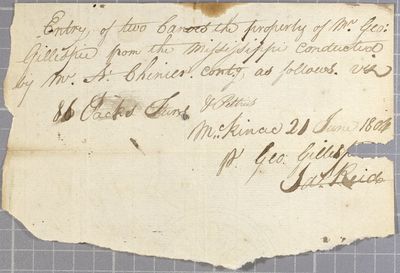 Entry, of two Canoes the property of Mr. Geo:
Gillespie from the Mississippi conducted
by Mr. A: Chenier contg. as follows. viz
86 Packs Furs & Peltries
McKinac 21 June 1804
pr. Geo: Gillespie
Jas. Reid